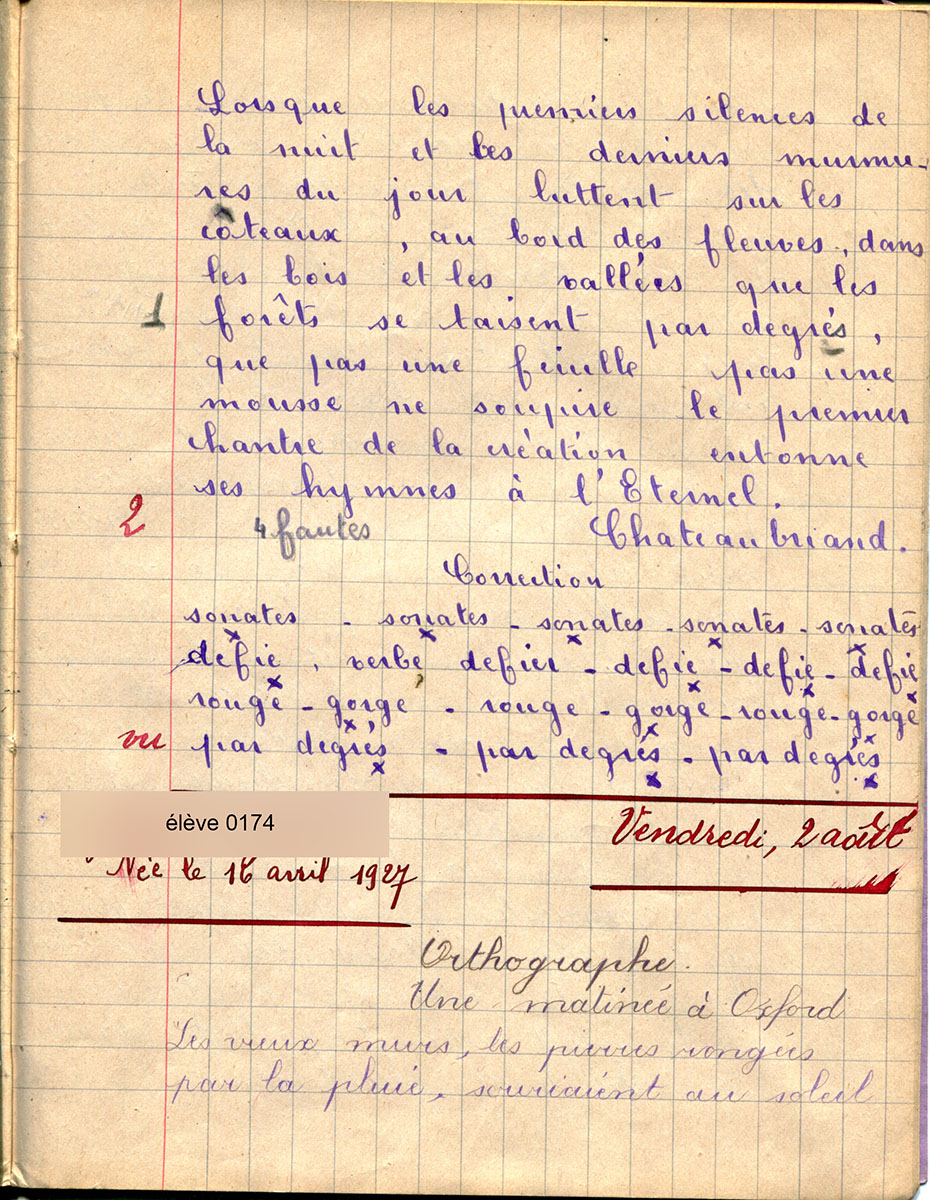 Lorsque les premiers silences de
la nuit et les derniers murmu-
res du jour luttent sur les
côteaux, au bord des fleuves, dans
les bois et les vallées que les
1 forêts se taisent par degrés,
que pas une feuille pas une
mousse ne soupire le premier
chantre de la création entonne
ses hymnes à l'Eternel.
2 4 fautes Chateaubriand.
Correction
sonates - sonates - sonates - sonates - sonates
défie, verbe defier - defie - defie - defie
rouge - gorge - rouge - gorge - rouge - gorge
vu par degrés - par degrés - par degrés
élève 0174
Vendredi, 2 août
Née le 16 avril 1927
Orthographe.
Une matinée à Oxford
Les vieux murs, les pierres rongées
par la pluie, souriaient au soleil